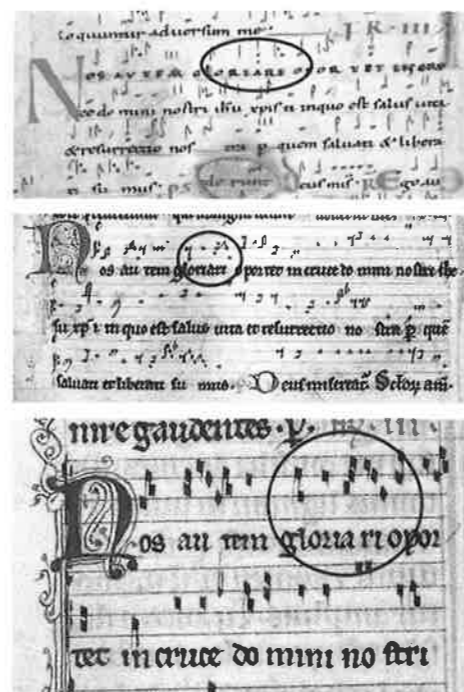 loquuntur adversum me. FR · III
NOS AUTEM GLORIARI OPORTET IN CRUCE
do mini nostri ihu xpi in quo est salus vita
& resurrectio nos p quem salvati & libera
ti su mus. ps deus mis
Nos au tem gloriari oportet in cruce do mini nostri ihe
su xpi in quo est salus vita et resurrectio no stra p quē
salvati et liberati su mus. Deus misereat.
nire gaudentes. p.
Nos au tem gloria ri opor
tet in cruce do mini no stri